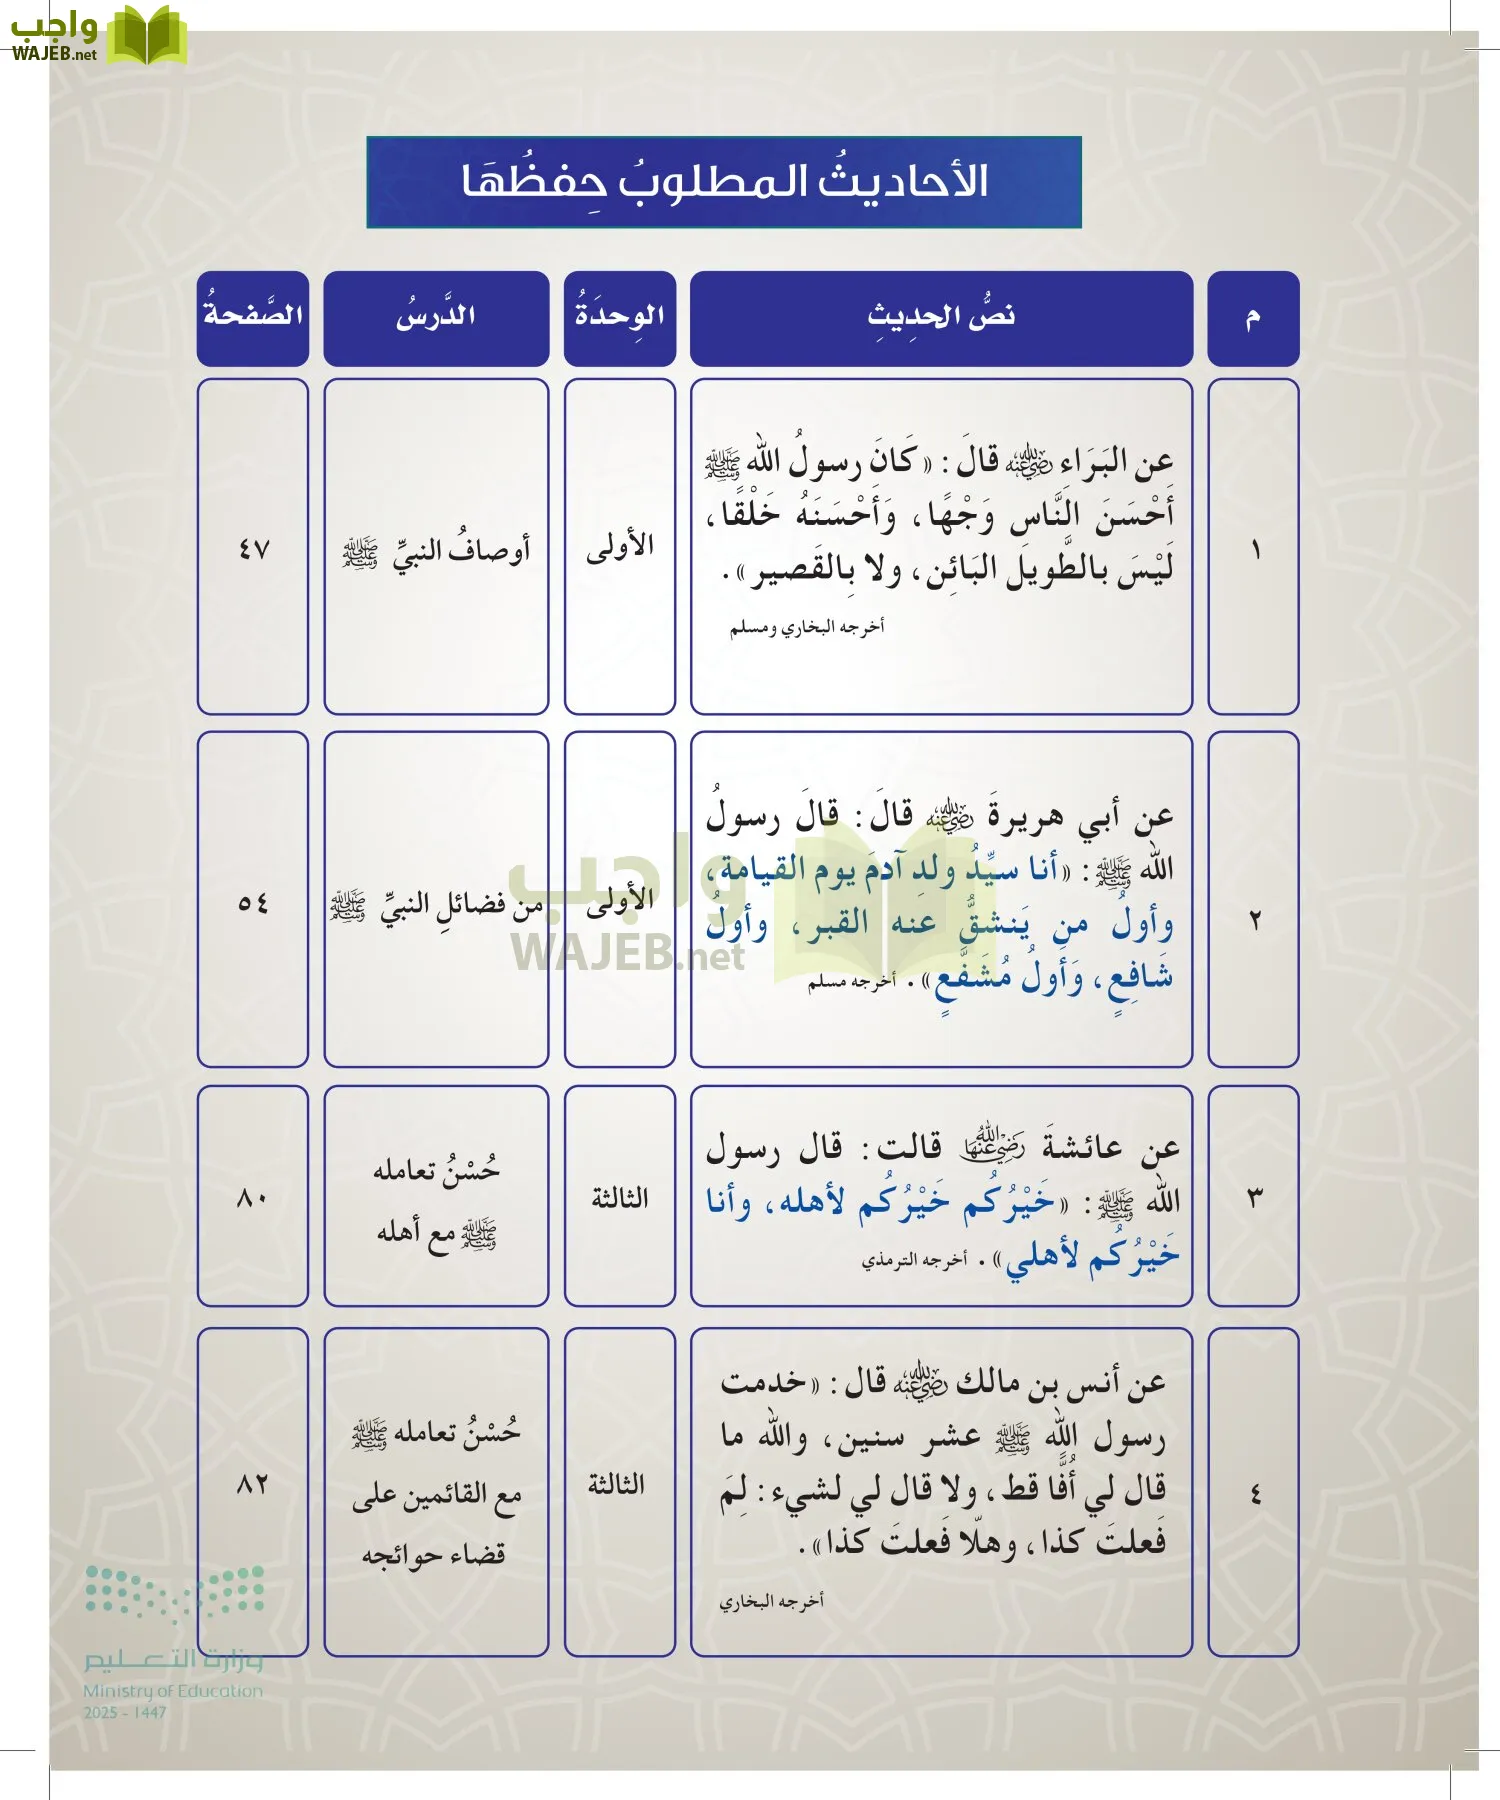 واجب
WAJEB.net
الأحاديثُ المطلوبُ حِفظُهَا
م
نصُّ الحدِيثِ
الوِحدَةُ
الدَّرسُ
الصَّفحةُ
١
عِن البَرَاءِ رضي الله عنه قالَ: «كَانَ رسولُ الله ﷺ
أَحْسَنَ النَّاسِ وَجْهًا، وَأَحْسَنَهُ خَلْقًا،
لَيْسَ بالطَّويلِ البَائِن، ولا بِالقَصير».
أخرجه البخاري ومسلم
الأولى
أوصافُ النبيِّ ﷺ
٤٧
٢
عن أبي هريرةَ رضي الله عنه قالَ: قالَ رسولُ
الله ﷺ: «أنا سيِّدُ ولدِ آدمَ يوم القيامة،
وأولُ منِ يَنشقُّ عنه القبر، وأولُ
شَافِعٍ، وَأولُ مُشَفَّعٍ». أخرجه مسلم
الأولى
من فضائلِ النبيِّ ﷺ
٥٤
واجب
WAJEB.net
٣
عن عائشةَ رضي الله عنها قالت: قال رسول
الله ﷺ: «خَيْرُكُم خَيْرُكُم لأهله، وأنا
خَيْرُكُم لأهلي». أخرجه الترمذي
الثالثة
حُسْنُ تعامله
ﷺ مع أهله
٨٠
٤
عن أنس بن مالك رضي الله عنه قال: «خدمت
رسول الله ﷺ عشر سنين، والله ما
قال لي أُفًّا قط، ولا قال لي لشيء: لِمَ
فَعلتَ كذا، وهلّا فَعلتَ كذا».
أخرجه البخاري
الثالثة
حُسْنُ تعامله ﷺ
مع القائمين على
قضاء حوائجه
٨٢
وزارة التعليم
Ministry of Education
2025 - 1447